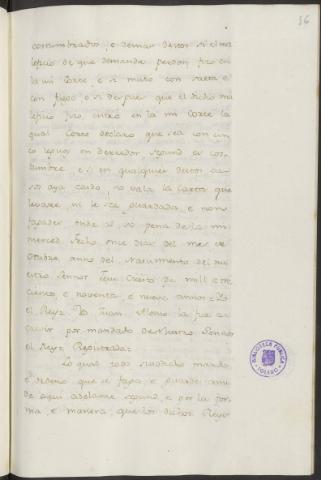 36
costumbrados, e demas destos si el ma
lefisio de que demanda perdon fizo en
la mi Corte, e si mato con saeta e
con fuego e si despues que el dicho ma
lefisio fizo, entro en la mi Corte la
qual Corte declaro que sea con cin
co leguas en derredor segund es cos
tumbre e si en qualquier destos ca
sos aya caido, no vala la Carta que
levare ni le sea guardada, e non
fagades ende al so pena de la mi
merced. Fecho once dias del mes de
Otubre, anno del Nacimiento del nu
estro Sennor Jesu Cristo de mill e tre
cientos e noventa e nueve annos = Yo
el Rey = Yo Juan Alonso la fice es
crivir por mandado de Nuestro Sennor
el Rey = Registrada =
Lo qual todo susodicho mando
e ordeno que se faga e guarde ansi
de aqui adelante segund, e por la for
ma, e manera, que los dichos Reyes
BIBLIOTECA PUBLICA
TOLEDO